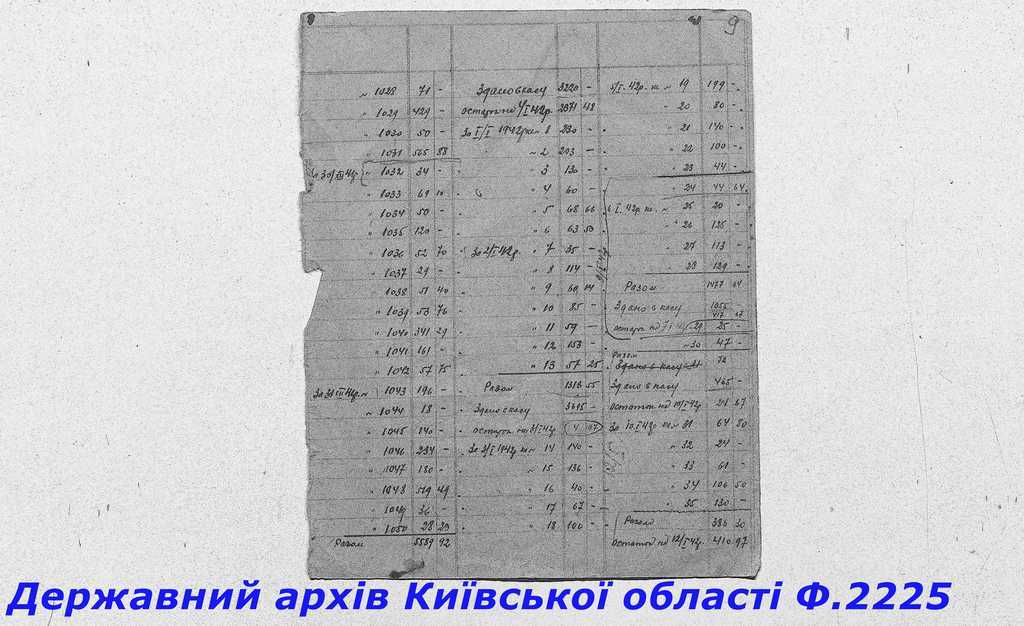 9
" 1028 71 -
" 1029 429 -
" 1030 50 -
" 1031 565 88
За 30/XII 41р. " 1032 34 -
" 1033 69 10
" 1034 50 -
" 1035 120 -
" 1036 52 70
" 1037 29 -
" 1038 51 40
" 1039 53 76
" 1040 341 29
" 1041 161 -
" 1042 57 75
За 31 XII 41р. " 1043 196 -
" 1044 18 -
" 1045 140 -
" 1046 234 -
" 1047 180 -
" 1048 519 49
" 1049 36 -
" 1050 28 23
Разом 5589 92
Здано в касу 3220 -
остаток на 1/I 42р. 2371 48
За I/I 1942р. кв. " 1 230 -
" 2 203 -
" 3 130 -
" 4 60 -
" 5 68 66
" 6 63 50
За 2/I 42р. " 7 35 -
" 8 114 -
" 9 60 14
" 10 85 -
" 11 59 -
" 12 153 -
" 13 57 25
Разом 1318 55
Здано в касу 3615 -
остаток на 3/I 42р. 4 07
За 3/I 1942р. кв. " 14 140 -
" 15 136 -
" 16 40 -
" 17 67 -
" 18 100 -
5/I. 42р. кв. " 19 199 -
" 20 80 -
" 21 140 -
" 22 100 -
" 23 44 -
" 24 44 64
6 I. 42р. кв. " 25 20 -
" 26 125 -
" 27 113 -
" 28 129 -
Разом 1477 64
Здано в касу 1055
417 67
остаток на 7/I 42р. 29 25 -
" 30 47 -
Разом 72
Здано в касу 31
Здано в касу 465 -
остаток на 10/I 42р. 24 67
За 10.I 42р. кв. " 31 64 80
" 32 24 -
" 33 61 -
" 34 106 50
" 35 130 -
Разом 386 30
Остаток на 12/I 42р. 410 97
Державний архів Київської області Ф.2225